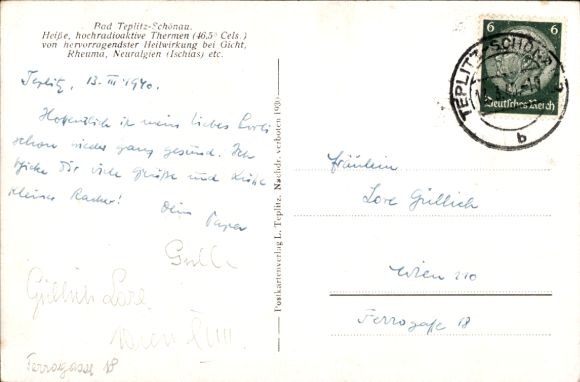 Bad Teplitz-Schönau.
Heiße, hochradioaktive Thermen (46,5° Cels.)
von hervorragendster Heilwirkung bei Gicht,
Rheuma, Neuralgien (Ischias) etc.
Teplitz, 13. III 1940.
Hoffentlich ist mein liebes Lorli
schon wieder ganz gesund. Ich
schicke Dir viele Grüße und Küsse
kleiner Racker!
Dein Papa
Güllich Lore
Wien
Ferrogasse 18
Postkartenverlag L. Teplitz. Nachdr. verboten 1930
6 6
Deutsches Reich
TEPLITZ-SCHÖNAU
b
Fräulein
Lore Güllich
Wien 110
Ferrogaße 18